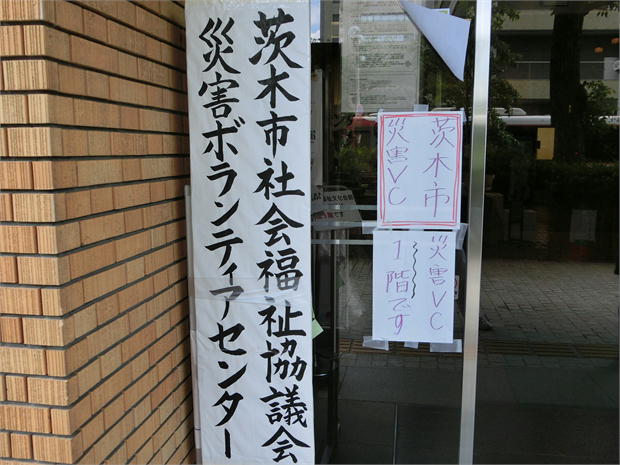 茨木市社会福祉協議会
災害ボランティアセンター
茨木市
災害VC
災害VC
1階です